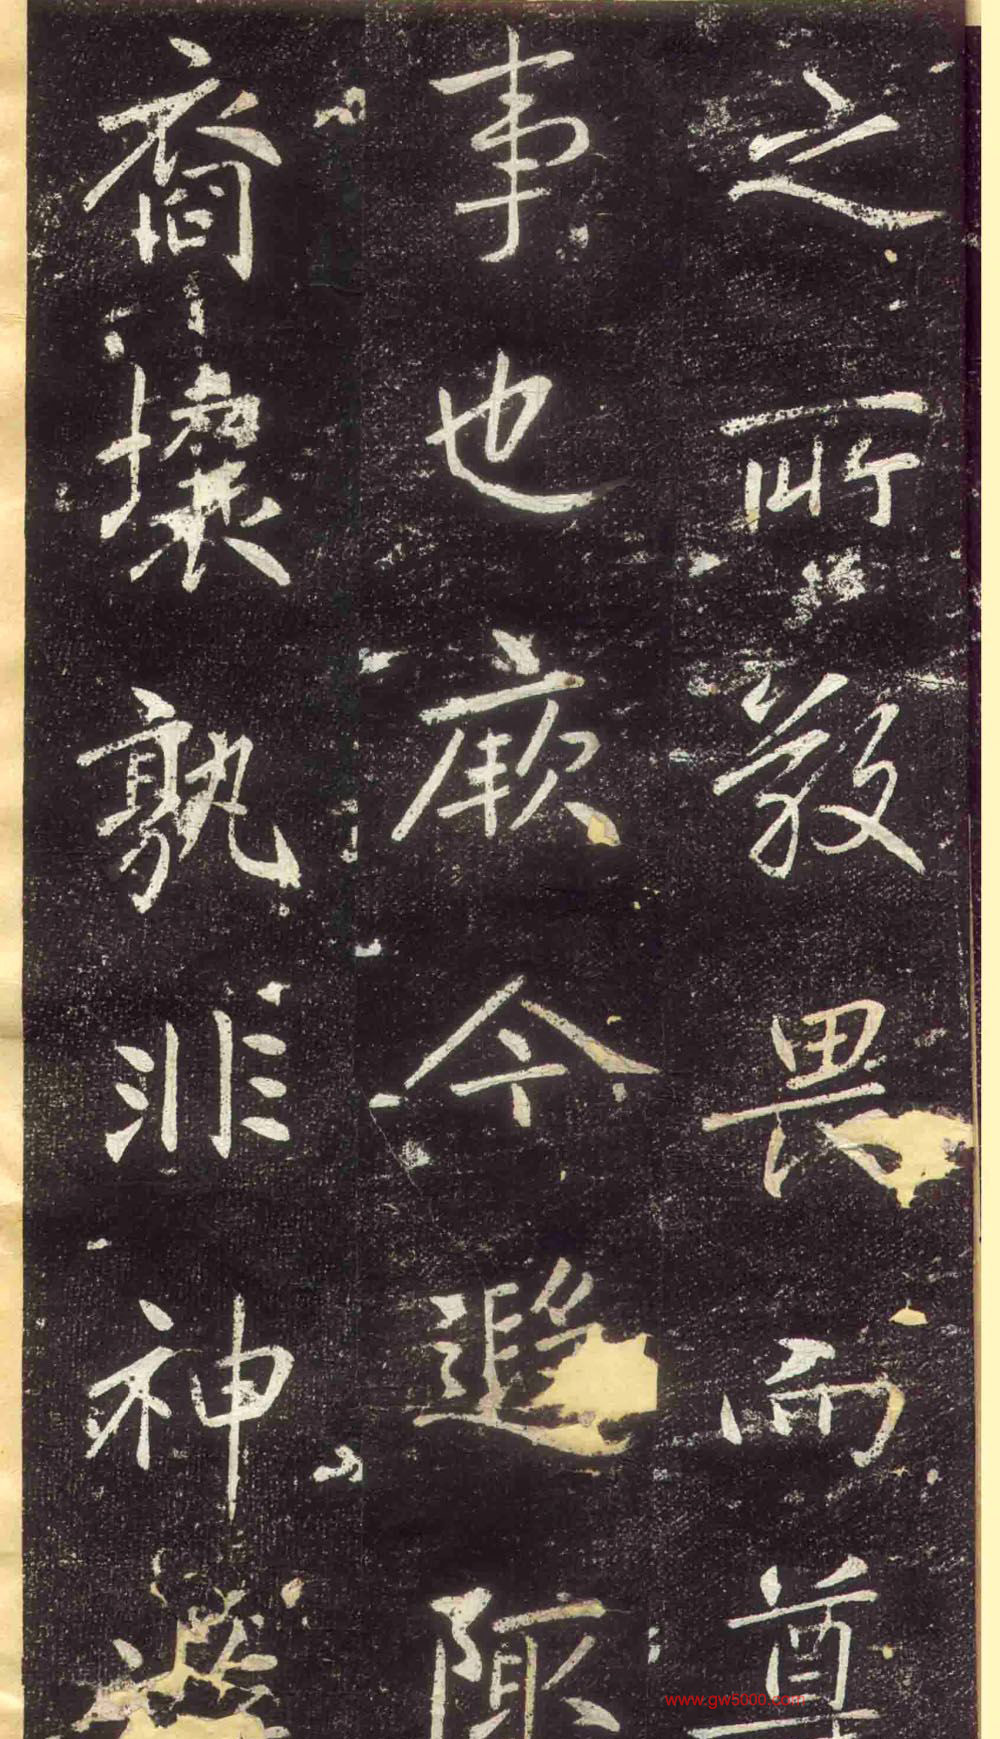 之所敬畏而尊
事也厥今遐陬
裔壤孰非神
www.gw5000.com